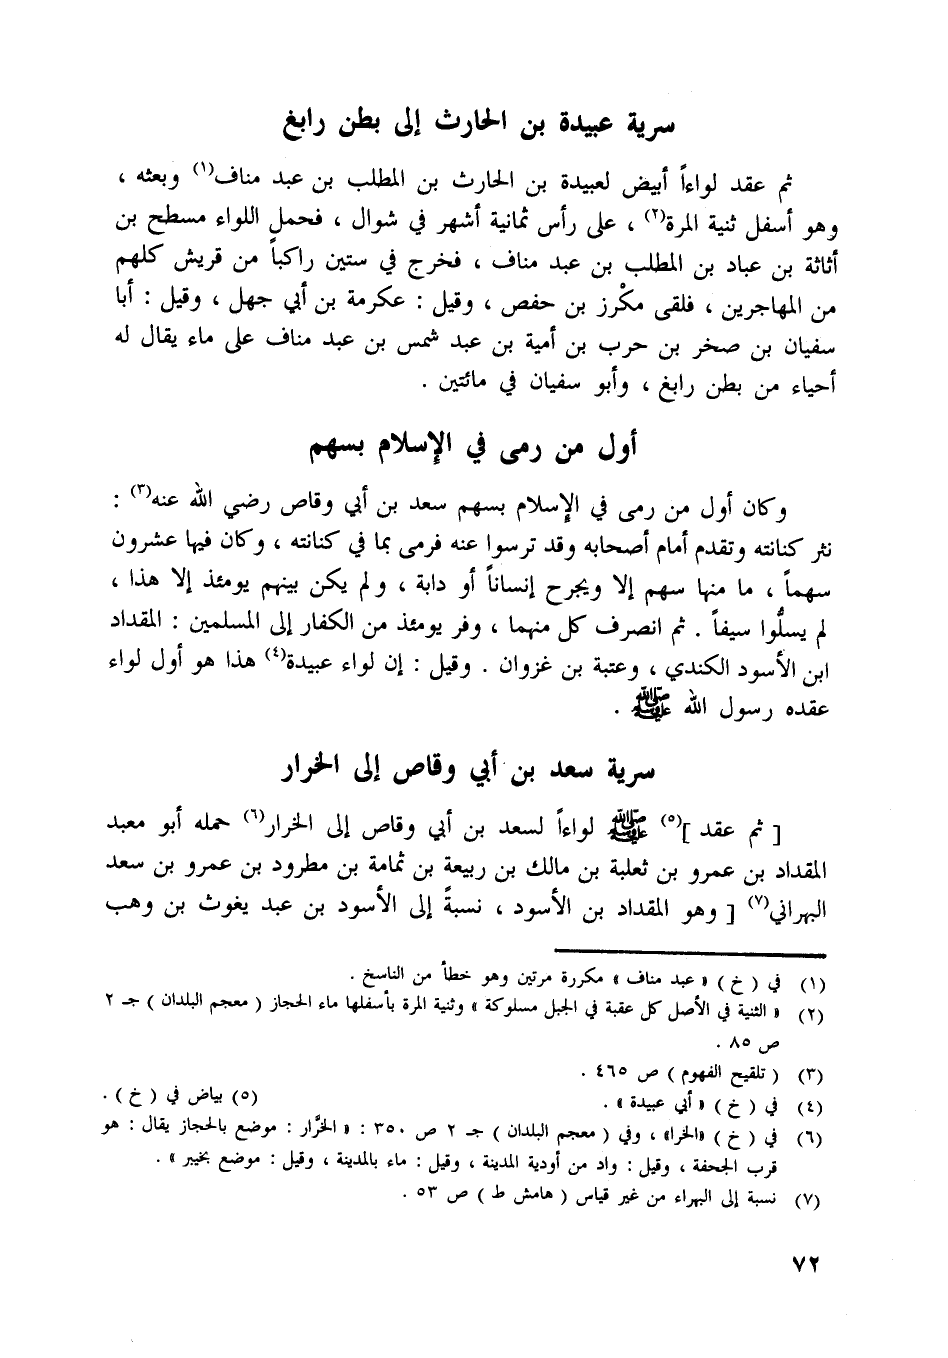 سرية عبيدة بن الحارث إلى بطن رابغ
ثم عقد لواءاً أبيض لعبيدة بن الحارث بن المطلب بن عبد مناف(١) وبعثه ،
وهو أسفل ثنية المرة(٢) ، على رأس ثمانية أشهر في شوال ، فحمل اللواء مسطح بن
أثاثة بن عباد بن المطلب بن عبد مناف ، فخرج في ستين راكباً من قريش كلهم
من المهاجرين ، فلقى مكْرز بن حفص ، وقيل : عكرمة بن أبي جهل ، وقيل : أبا
سفيان بن صخر بن حرب بن أمية بن عبد شمس بن عبد مناف على ماء يقال له
أحياء من بطن رابغ ، وأبو سفيان في مائتين .
أول من رمى في الإسلام بسهم
وكان أول من رمى في الإسلام بسهم سعد بن أبي وقاص رضي الله عنه(٣) :
نثر كنانته وتقدم أمام أصحابه وقد ترسوا عنه فرمى بما في كنانته ، وكان فيها عشرون
سهماً ، ما منها سهم إلا ويجرح إنساناً أو دابة ، ولم يكن بينهم يومئذ إلا هذا ،
لم يسلُّوا سيفاً . ثم انصرف كل منهما ، وفر يومئذ من الكفار إلى المسلمين : المقداد
ابن الأسود الكندي ، وعتبة بن غزوان . وقيل : إن لواء عبيدة(٤) هذا هو أول لواء
عقده رسول الله ﷺ .
سرية سعد بن أبي وقاص إلى الخرار
[ ثم عقد ](٥) ﷺ لواءاً لسعد بن أبي وقاص إلى الخرار(٦) حمله أبو معبد
المقداد بن عمرو بن ثعلبة بن مالك بن ربيعة بن ثمامة بن مطرود بن عمرو بن سعد
البهراني(٧) [ وهو المقداد بن الأسود ، نسبةً إلى الأسود بن عبد يغوث بن وهب
(١) في ( خ ) « عبد مناف » مكررة مرتين وهو خطأ من الناسخ .
(٢) « الثنية في الأصل كل عقبة في الجبل مسلوكة » وثنية المرة بأسفلها ماء الحجاز ( معجم البلدان ) جـ ٢
ص ٨٥ .
(٣) ( تلقيح الفهوم ) ص ٤٦٥ .
(٤) في ( خ ) « أبي عبيدة » . (٥) بياض في ( خ ) .
(٦) في ( خ ) «الخرا» ، وفي ( معجم البلدان ) جـ ٢ ص ٣٥٠ : « الخرَّار : موضع بالحجاز يقال : هو
قرب الجحفة ، وقيل : واد من أودية المدينة ، وقيل : ماء بالمدينة ، وقيل : موضع بخيبر » .
(٧) نسبة إلى البهراء من غير قياس ( هامش ط ) ص ٥٣ .
٧٢